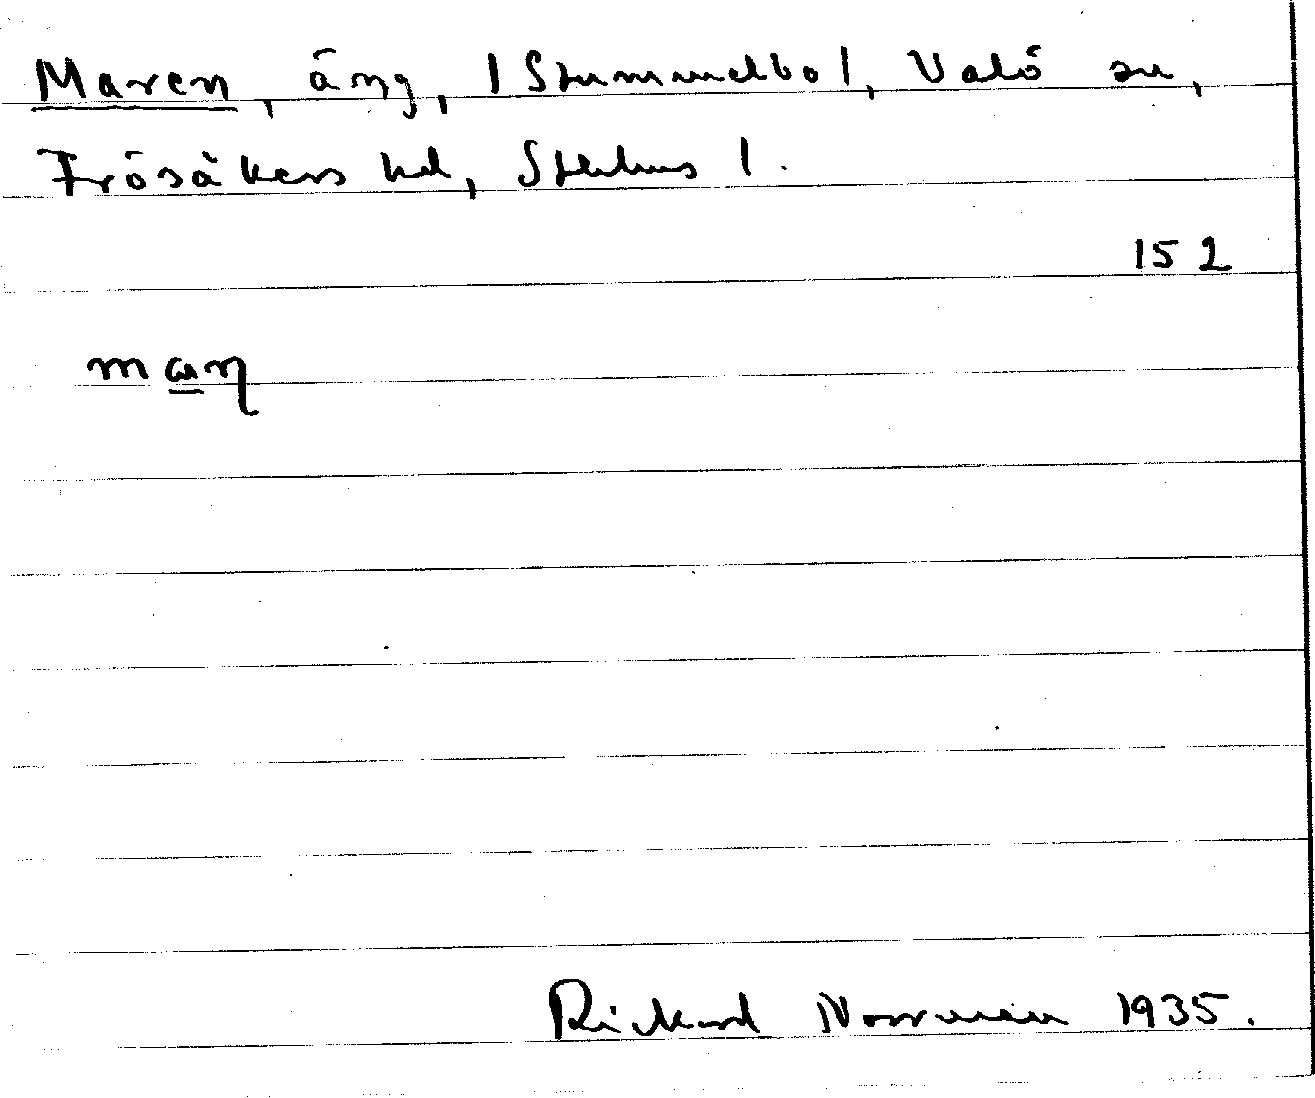 Maren, äng, |Stummelbo|, Valö sn,
Frösåkers hd, Sthlms l.
152
maɳ
Rickard Norrman 1935.